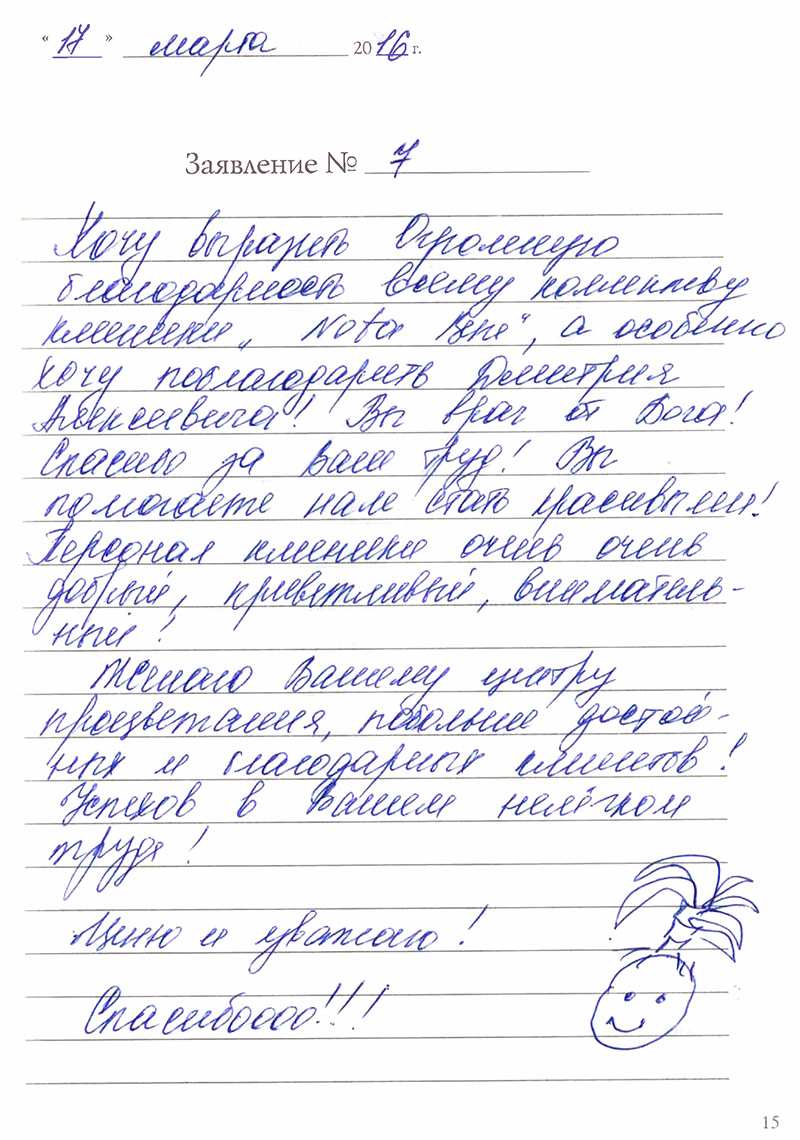 « 17 » марта 2016 г.
Заявление № 7
Хочу выразить Огромную
благодарность всему коллективу
клиники „Nota Bene“, а особенно
хочу поблагодарить Дмитрия
Алексеевича! Вы врач от Бога!
Спасибо за Ваш труд! Вы
помогаете нам стать красивыми!
Персонал клиники очень очень
добрый, приветливый, вниматель-
ный!
Желаю Вашему центру
процветания, побольше достой-
ных и благодарных клиентов!
Успехов в Вашем нелёгком
труде!
Ценю и уважаю!
Спасибоооо!!!
15